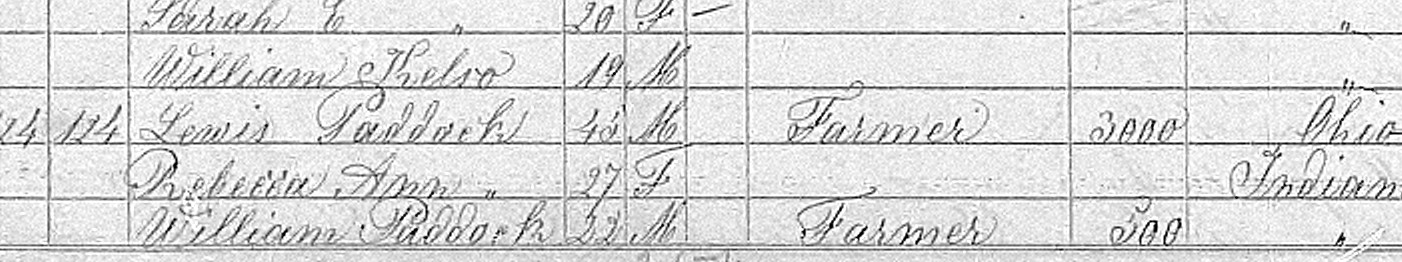 Sarah E " 20 F "
William Kelso 19 M "
124 Lewis Paddock M Farmer 3000 Ohio
Rebecca Ann " 27 F Indian
William Paddock 22 M Farmer 500 "